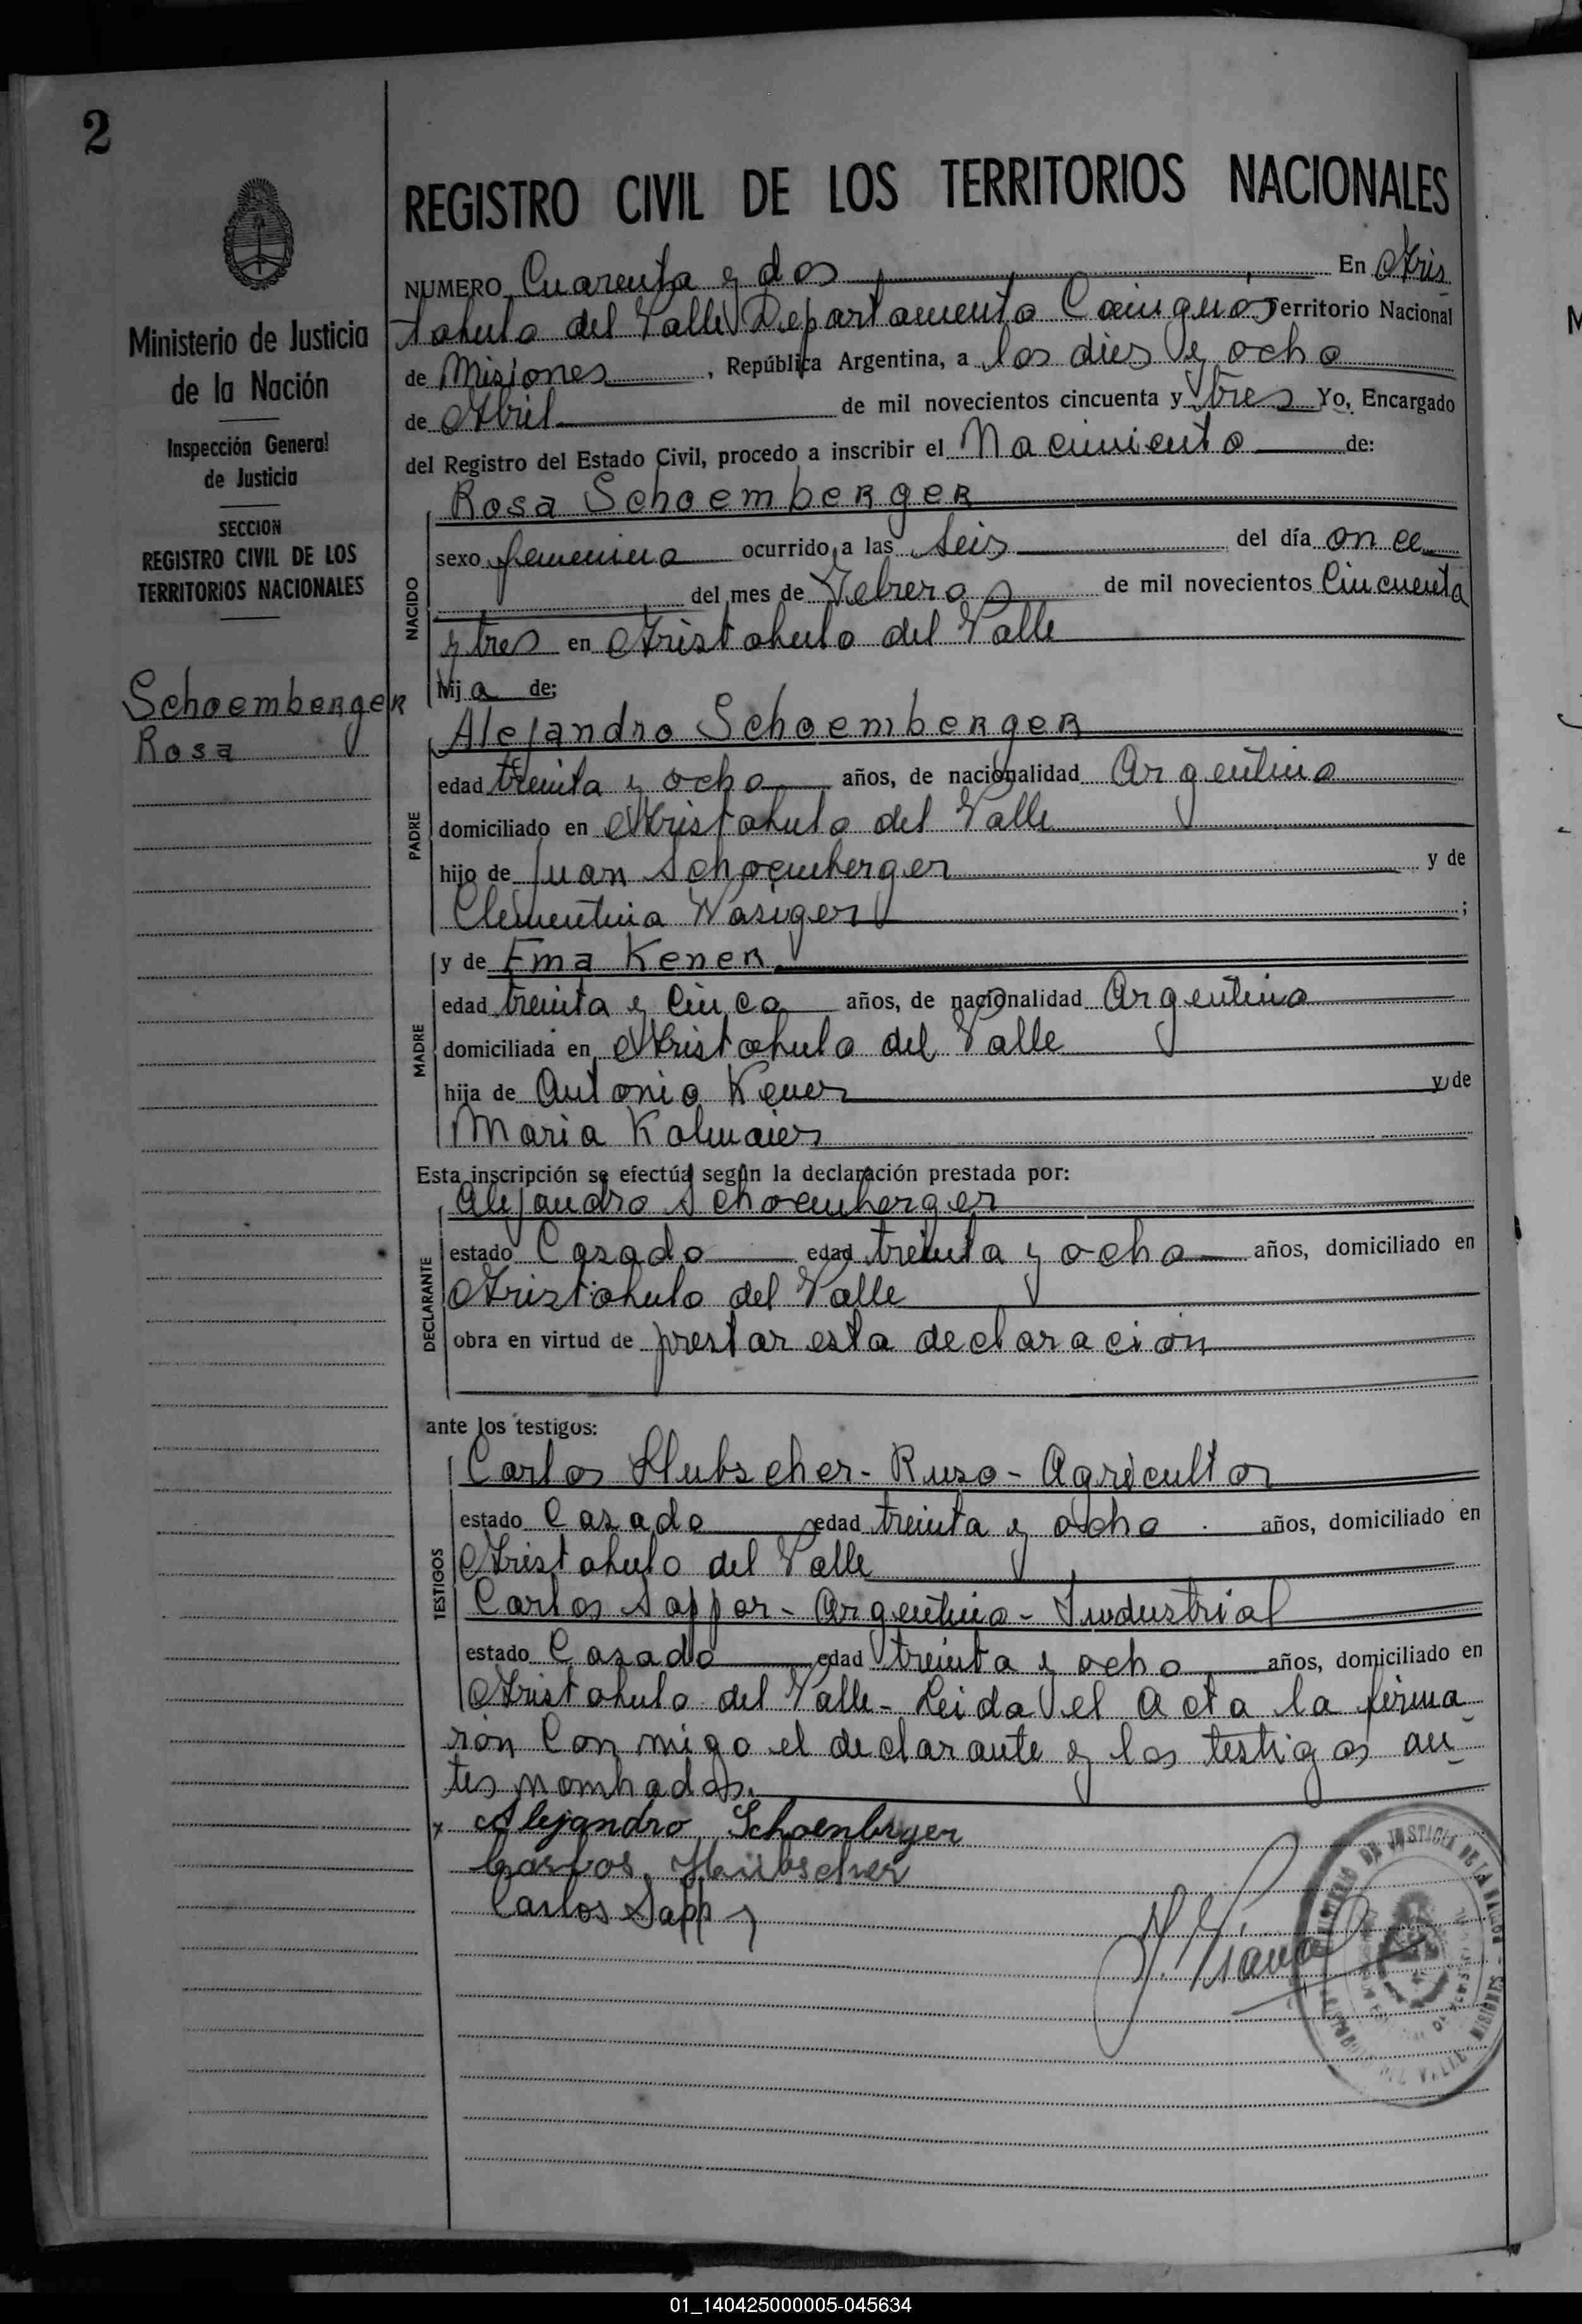 2
Ministerio de Justicia
de la Nación
Inspección General
de Justicia
SECCION
REGISTRO CIVIL DE LOS
TERRITORIOS NACIONALES
Schoemberger
Rosa
REGISTRO CIVIL DE LOS TERRITORIOS NACIONALES
NUMERO Cuarenta y dos En Aris
tobulo del Valle Departamento Cainguas Territorio Nacional
de Misiones, República Argentina, a los dies y ocho
de Abril de mil novecientos cincuenta y tres Yo, Encargado
del Registro del Estado Civil, procedo a inscribir el Nacimiento de:
NACIDO
Rosa Schoemberger
sexo femenino ocurrido a las seis del día once
del mes de Febrero de mil novecientos Cincuenta
y tres en Aristobulo del Valle
hija de;
PADRE
Alejandro Schoemberger
edad treinta y ocho años, de nacionalidad Argentino
domiciliado en Aristobulo del Valle
hijo de Juan Schoemberger y de
Clementina Wasiger;
MADRE
y de Ema Kener
edad treinta y cinco años, de nacionalidad Argentina
domiciliada en Aristobulo del Valle
hija de Antonio Kener y de
Maria Kolmaier
Esta inscripción se efectúa según la declaración prestada por:
DECLARANTE
Alejandro Schoemberger
estado Casado edad treinta y ocho años, domiciliado en
Aristobulo del Valle
obra en virtud de prestar esta declaración
ante los testigos:
TESTIGOS
Carlos Hubscher - Ruso - Agricultor
estado Casado edad treinta y ocho años, domiciliado en
Aristobulo del Valle
Carlos Sapper - Argentino - Industrial
estado Casado edad treinta y ocho años, domiciliado en
Aristobulo del Valle - Leida el Acta la firma
rón Conmigo el declarante y los testigos an
tes nombados.
x Alejandro Schoenberger
Carlos Hübscher
Carlos Sapp
01_140425000005-045634